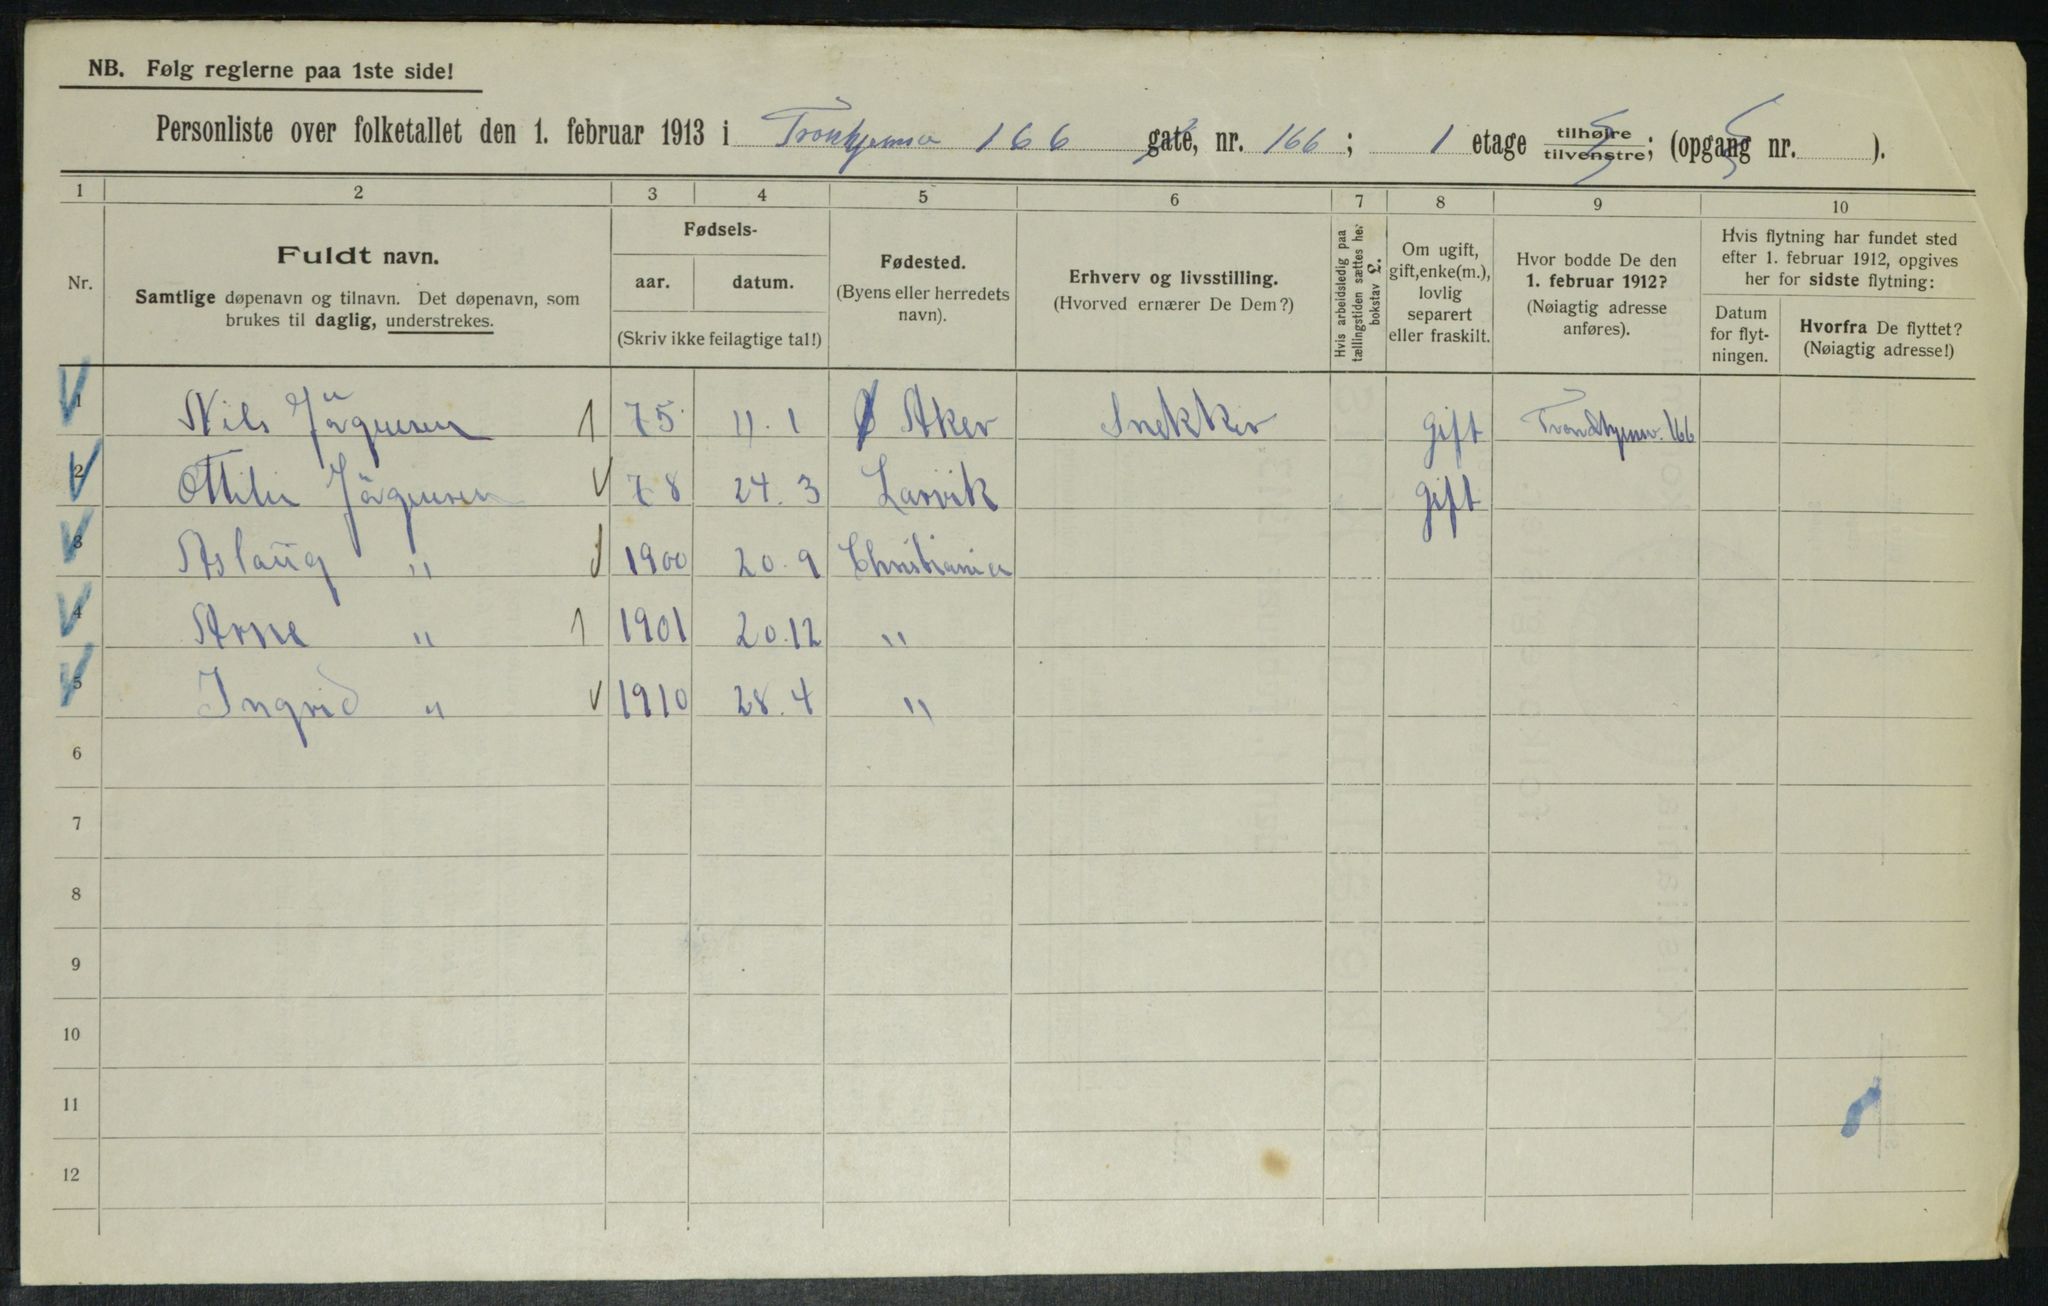 NB. Følg reglerne paa 1ste side!
Personliste over folketallet den 1. februar 1913 i 166 gate, nr. 166; 1 etage tilhøire tilvenstre; (opgang nr. ).
1 2 3 4 5 6 7 8 9 10
Nr.
Fuldt navn.
Samtlige døpenavn og tilnavn. Det døpenavn, som
brukes til daglig, understrekes.
Fødsels-
aar. datum.
(Skriv ikke feilagtige tal!)
Fødested.
(Byens eller herredets
navn).
Erhverv og livsstilling.
(Hvorved ernærer De Dem?)
Hvis arbeidsledig paa
tællingstiden sættes her
bokstav L.
Om ugift,
gift,enke(m.),
lovlig
separert
eller fraskilt.
Hvor bodde De den
1. februar 1912?
(Nøiagtig adresse
anføres).
Hvis flytning har fundet sted
efter 1. februar 1912, opgives
her for sidste flytning:
Datum
for flyt-
ningen.
Hvorfra De flyttet?
(Nøiagtig adresse!)
1 Nils Jörgensen 75 11.1 Ø Aker Snekker gift Trondhjemsv. 166
2 Ottilie Jörgensen 78 24.3 Larvik gift
3 Aslaüg " 1900 20.9 Christiania
4 Arne " 1901 20.12 "
5 Ingrid " 1910 28.4 "
6
7
8
9
10
11
12